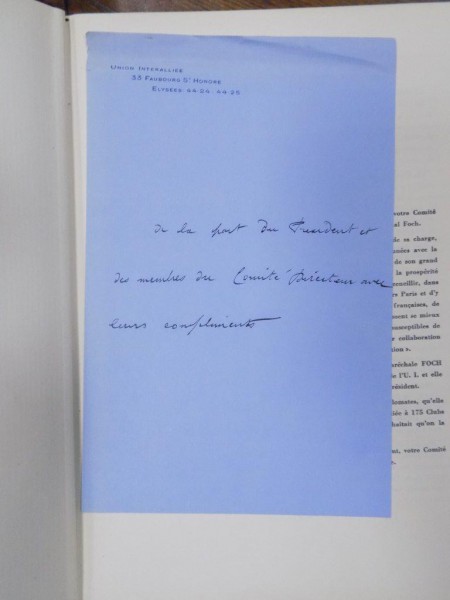 UNION INTERALLIÉE
33 FAUBOURG St HONORÉ
ELYSÉES: 44-24 - 44-25
de la part du Président et
des membres du Comité Directeur avec
leurs compliments
votre Comité
al Foch.
de sa charge,
avec la
de son grand
la prospérité
dans
rs Paris et d'y
françaises, de
ment se mieux
susceptibles de
e collaboration
tion ».
aréchale FOCH
de l'U. I. et elle
président.
plomates, qu'elle
liée à 175 Clubs
uhaitait qu'on la
nt, votre Comité